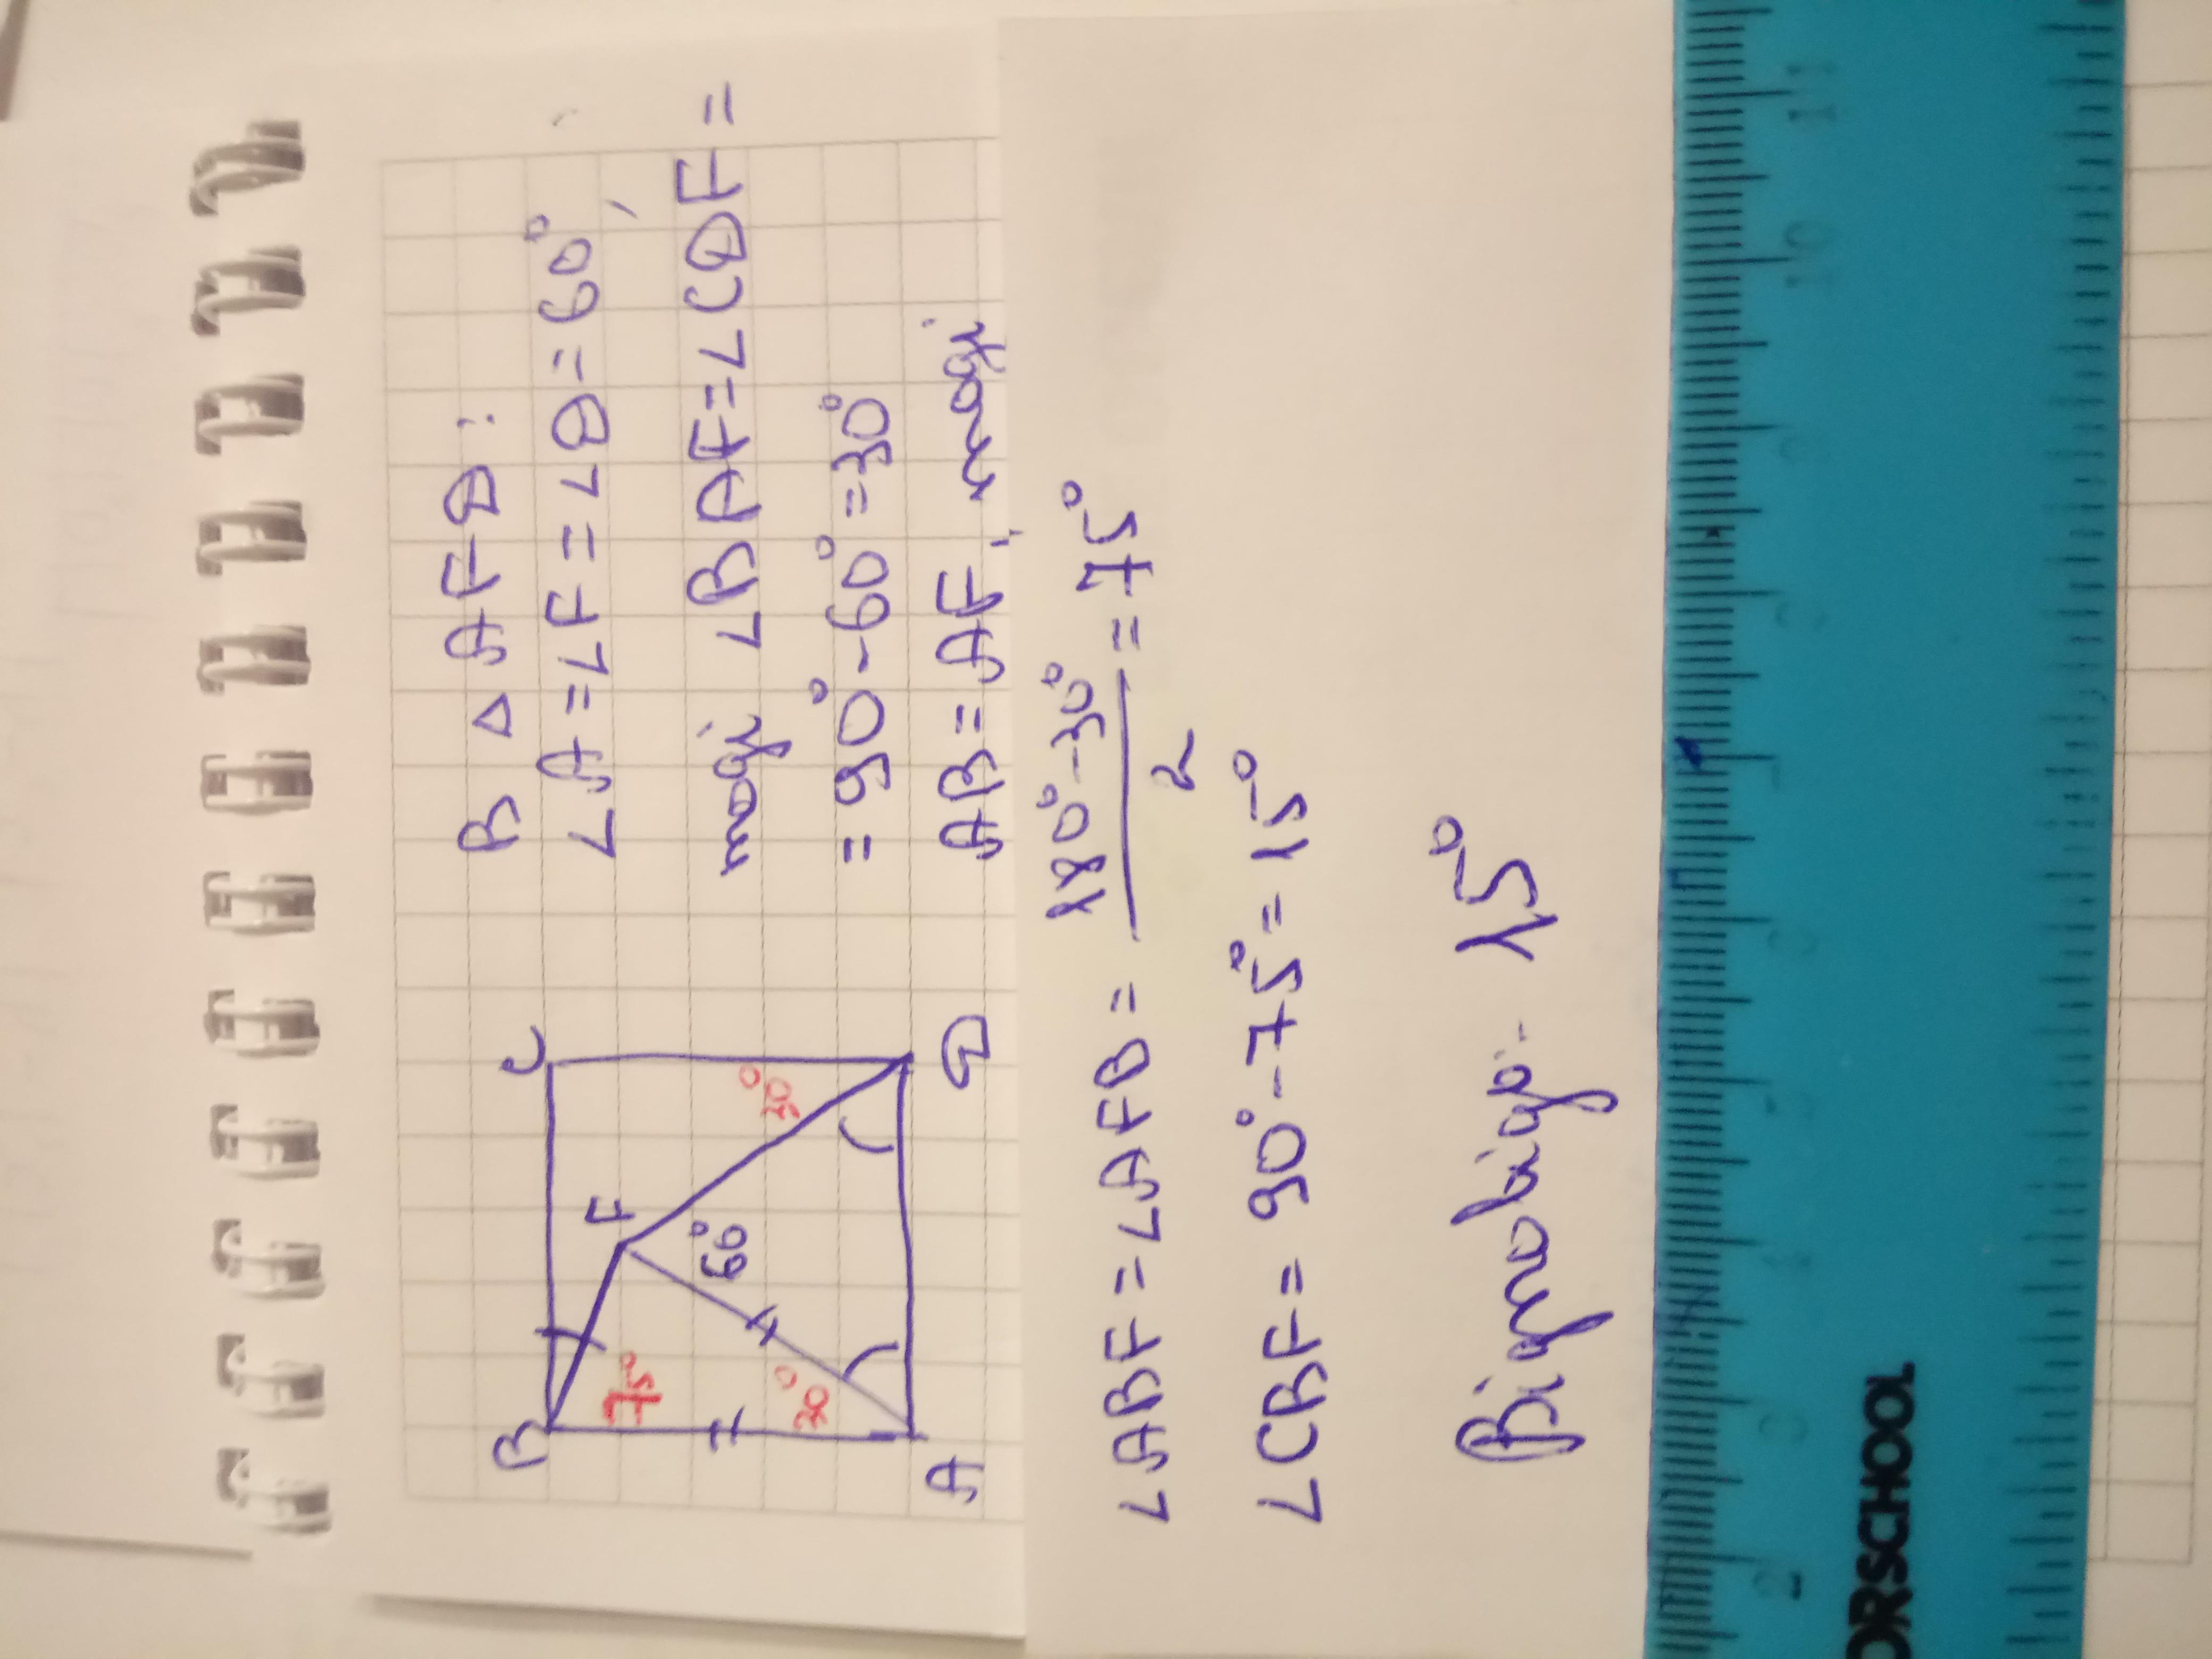 B C
F
75° 60° 30°
30°
A D
В △ AFD:
∠A = ∠F = ∠D = 60°,
тоді ∠BAF = ∠CDF =
= 90° - 60° = 30°
AB = AF, тоді
∠ABF = ∠AFB = 180° - 30° / 2 = 75°
∠CBF = 90° - 75° = 15°
Відповідь 15°
ORSCHOOL
10 11